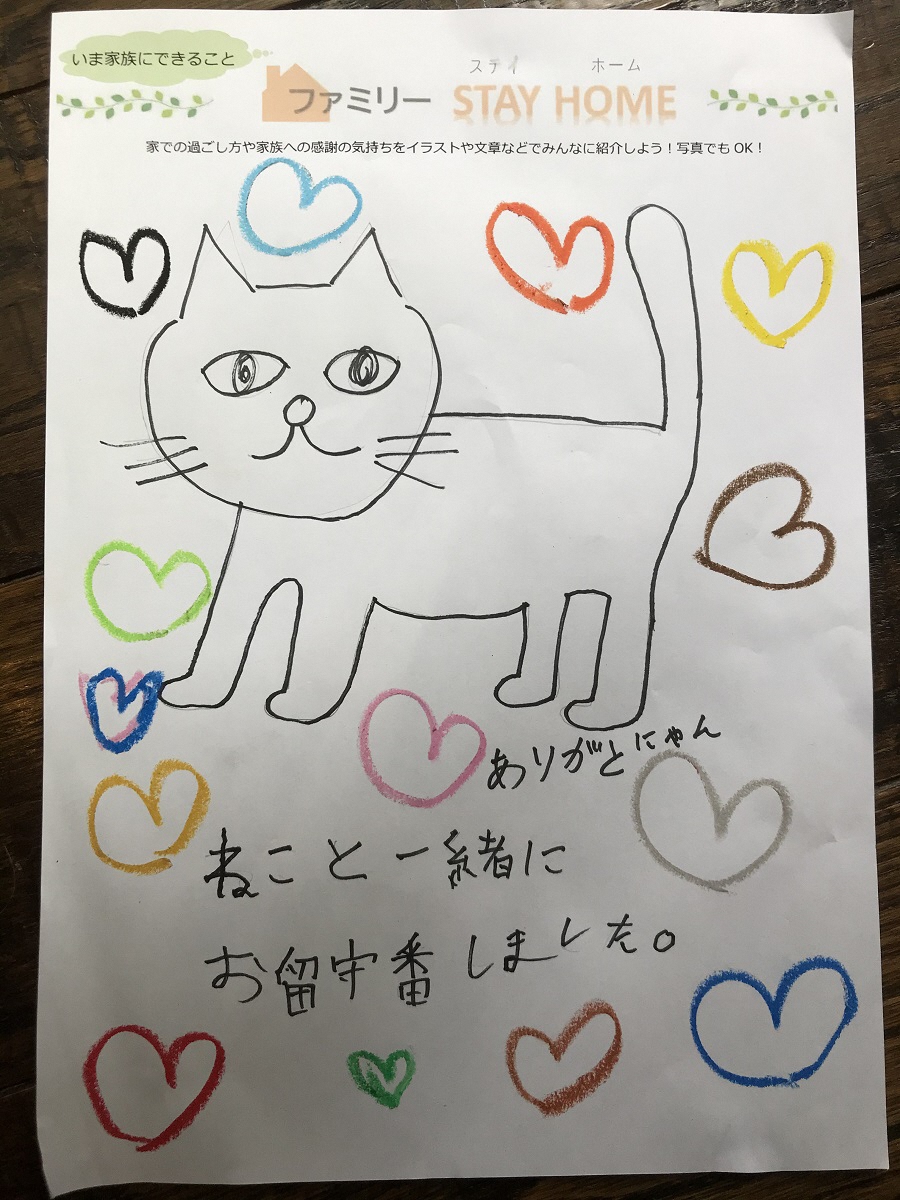 いま家族にできること
ステイ ホーム
ファミリー STAY HOME
家での過ごし方や家族への感謝の気持ちをイラストや文章などでみんなに紹介しよう！写真でもOK！
ありがとにゃん
ねこと一緒に
お留守番しました。